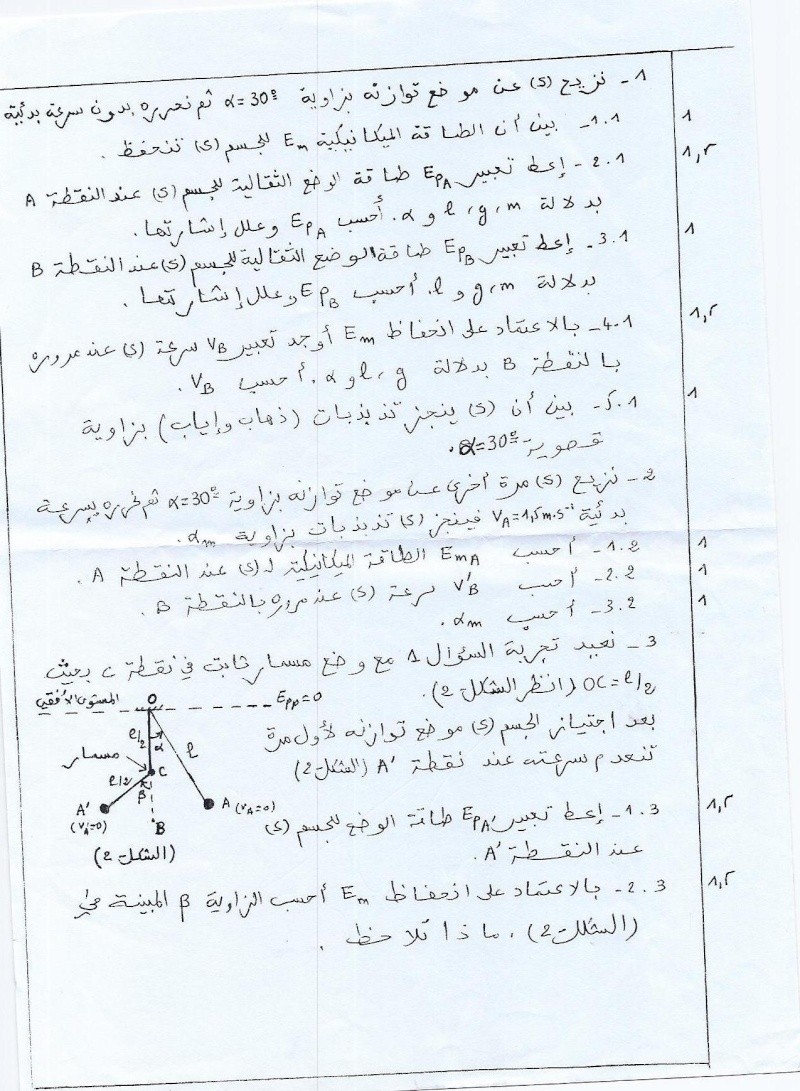 1- نزيح (S) عن موضع توازنه بزاوية α=30° ثم نحرره بدون سرعة بدئية
1.1- بين أن الطاقة الميكانيكية Em للجسم (S) تنحفظ. 1
2.1- إعط تعبير EpA طاقة الوضع الثقالية للجسم (S) عند النقطة A 1,5
بدلالة m، g، l و α. أحسب EpA وعلل إشارتها.
3.1- إعط تعبير EpB طاقة الوضع الثقالية للجسم (S) عند النقطة B 1
بدلالة m، g و l. أحسب EpB وعلل إشارتها.
4.1- بالاعتماد على انحفاظ Em أوجد تعبير VB سرعة (S) عند مروره 1,5
بالنقطة B بدلالة g، l و α. أحسب VB.
5.1- بين أن (S) ينجز تذبذبات (ذهاب وإياب) بزاوية 1
قصوية α=30°.
2- نزيح (S) مرة أخرى عن موضع توازنه بزاوية α=30° ثم نحرره بسرعة
بدئية VA=1,5m.s⁻¹ فينجز (S) تذبذبات بزاوية αm.
1.2- أحسب EmA الطاقة الميكانيكية لـ(S) عند النقطة A. 1
2.2- أحسب V'B سرعة (S) عند مروره بالنقطة B. 1
3.2- أحسب αm. 1
3- نعيد تجربة السؤال 1 مع وضع مسمار ثابت في نقطة C بحيث
OC=l/2 (انظر الشكل 2).
المستوى الأفقي O Epp=0
بعد اجتياز الجسم (S) موضع توازنه لأول مرة
تنعدم سرعته عند نقطة A' (الشكل 2)
l/2 α l
مسمار C
l/2 β
A' (VA'=0) A (VA=0)
B
(الشكل 2)
1.3- إعط تعبير EpA' طاقة الوضع للجسم (S) 1,5
عند النقطة A'.
2.3- بالاعتماد على انحفاظ Em أحسب الزاوية β المبينة في 1,5
(الشكل 2)، ماذا تلاحظ.